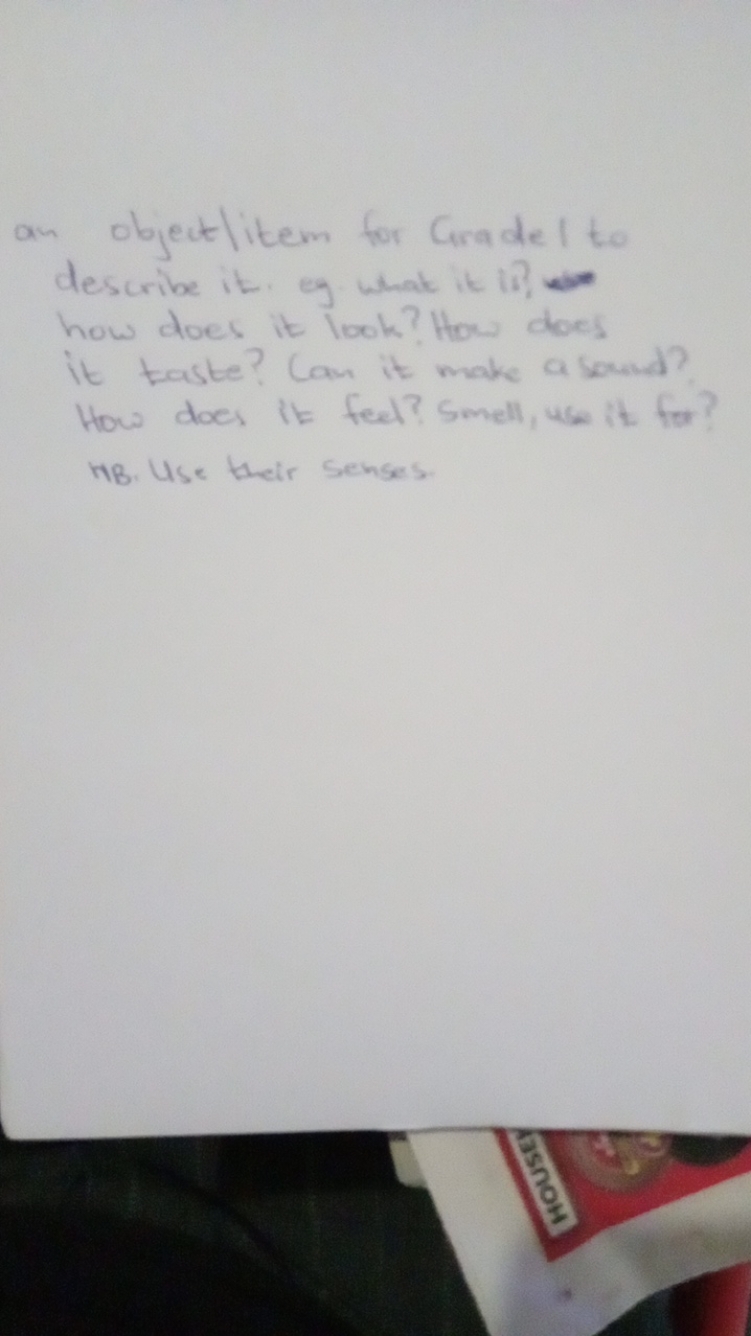 an object/item for Grade 1 to
describe it. eg. what it is?
how does it look? How does
it taste? Can it make a sound?
How does it feel? Smell, use it for?
NB. Use their senses.
HOUSE